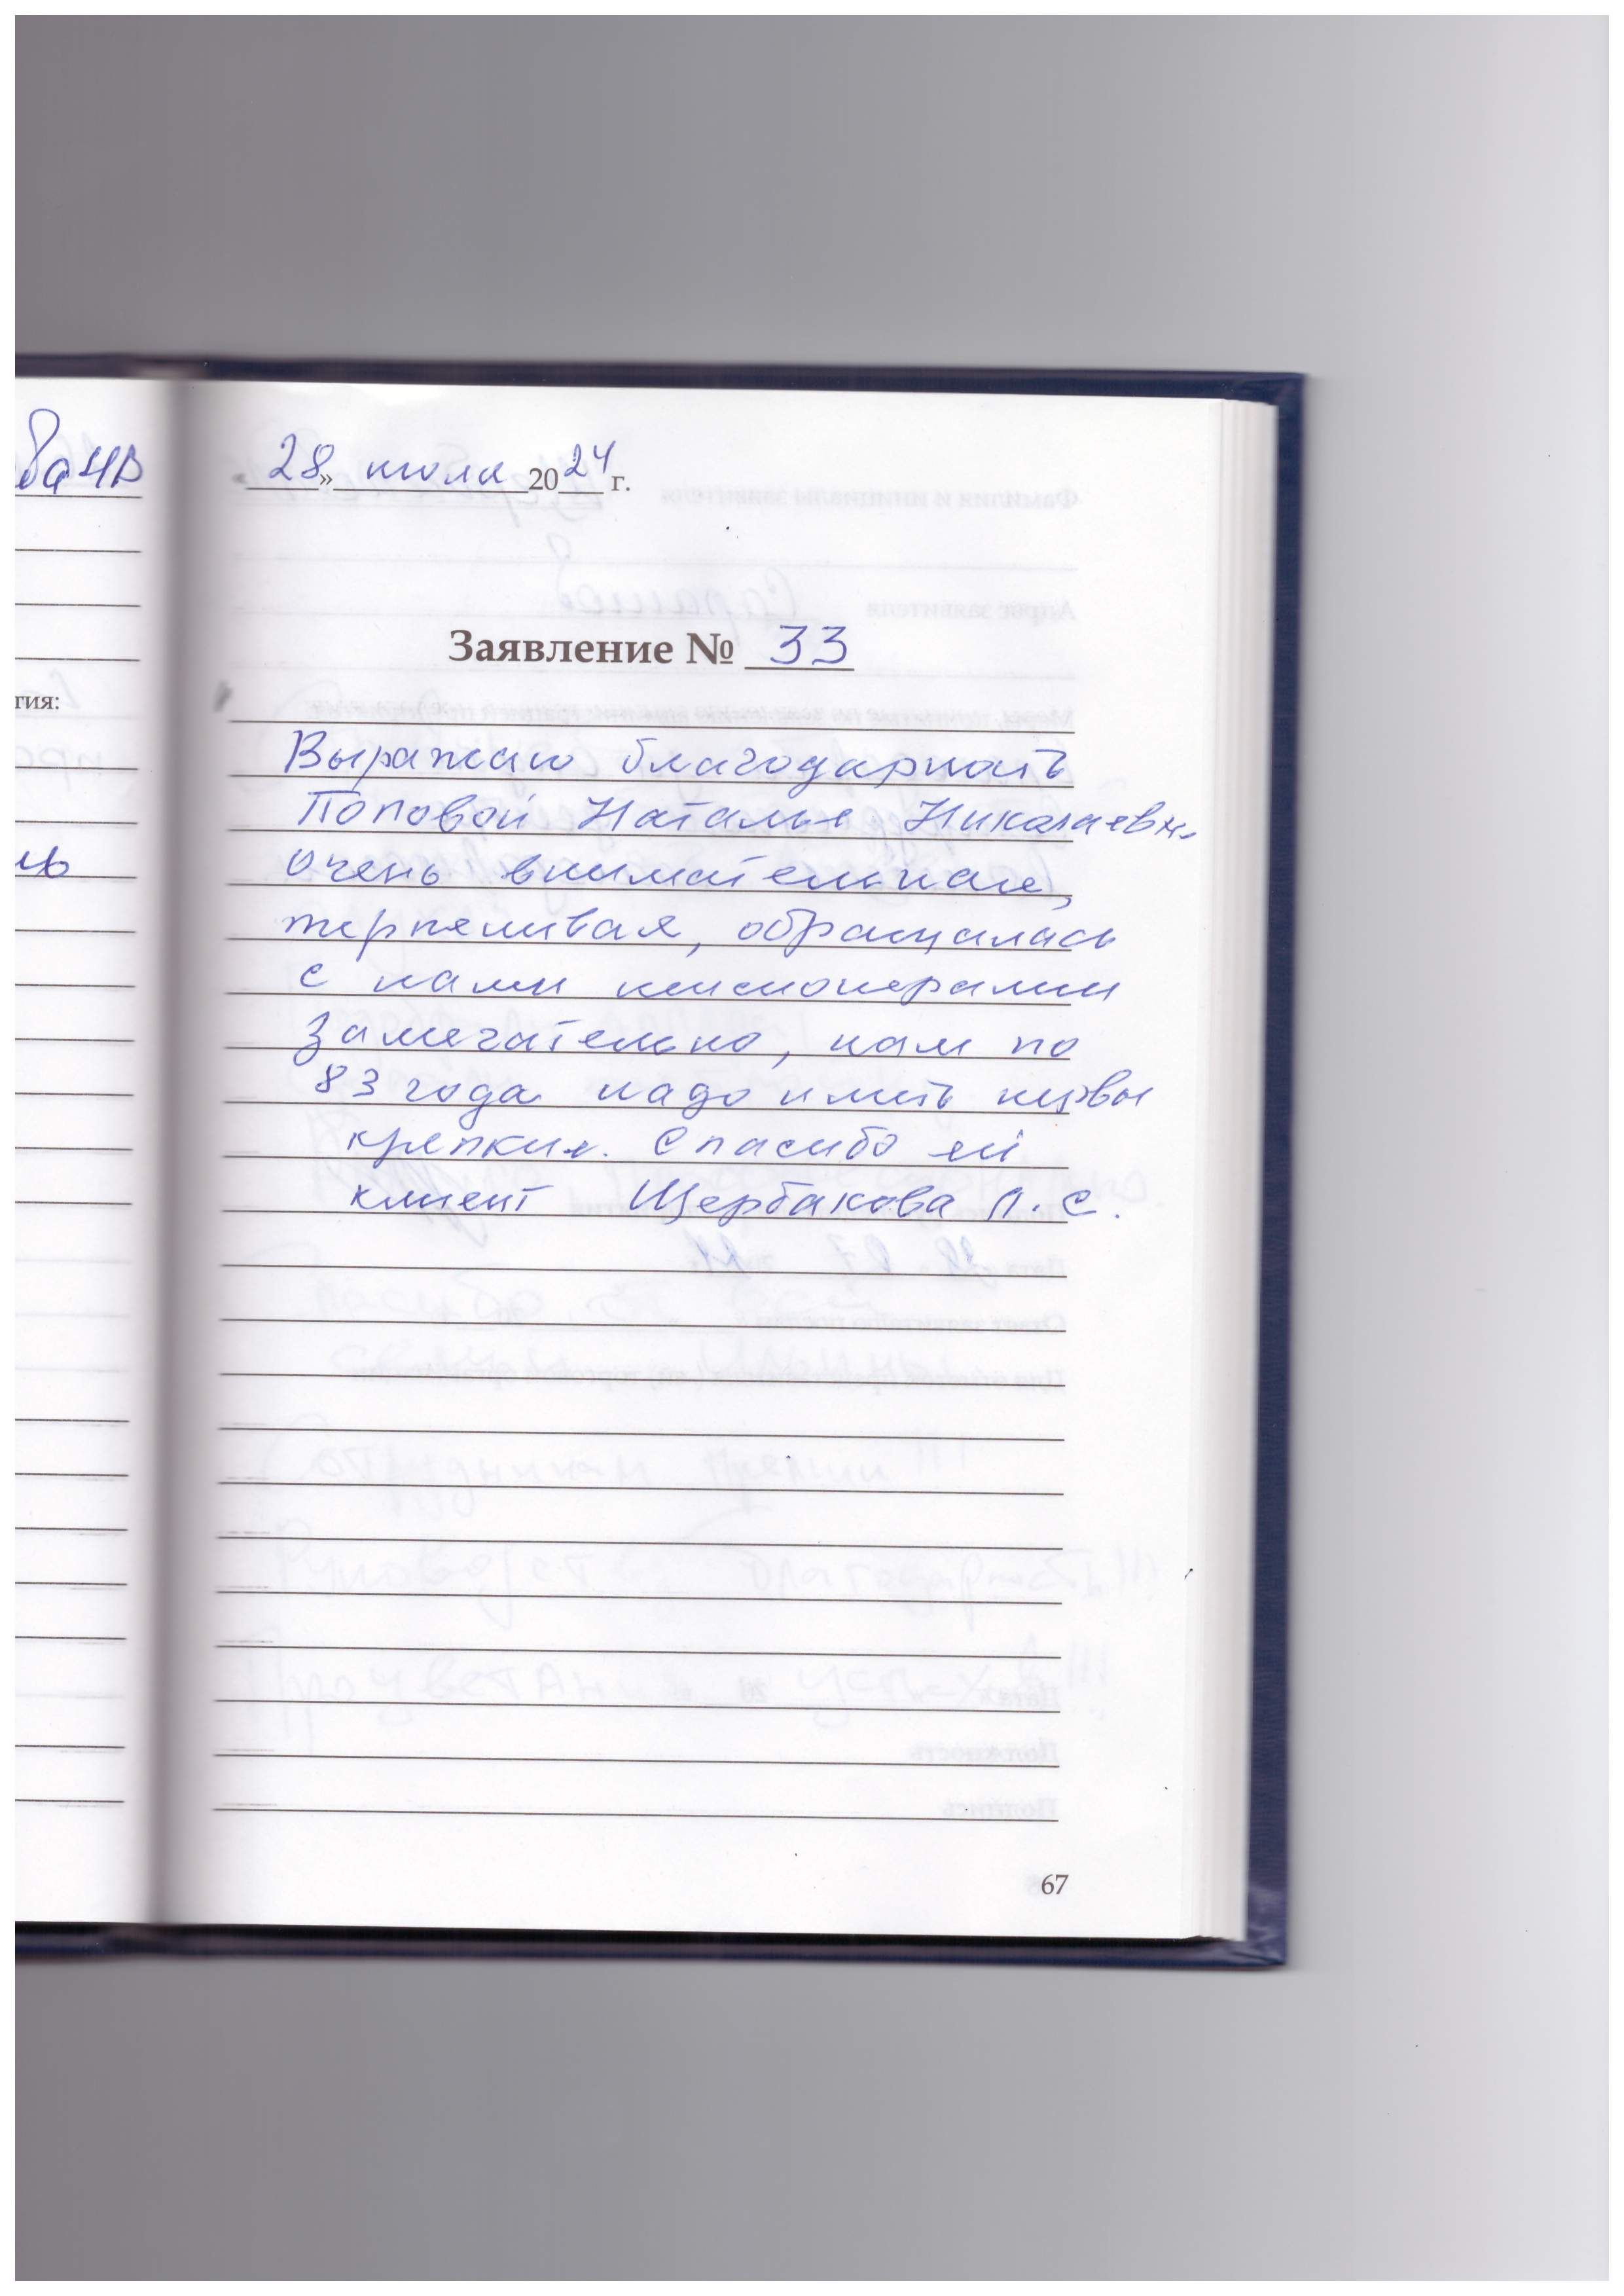 28» июля 2024 г.
Заявление № 33
гия:
Выражаю благодарность
Поповой Наталье Николаевн.
очень внимательная,
терпеливая, обращалась
с нами пенсионерами
замечательно, нам по
83 года надо иметь нервы
крепкие. Спасибо ей
клиент Щербакова Л. С.
67